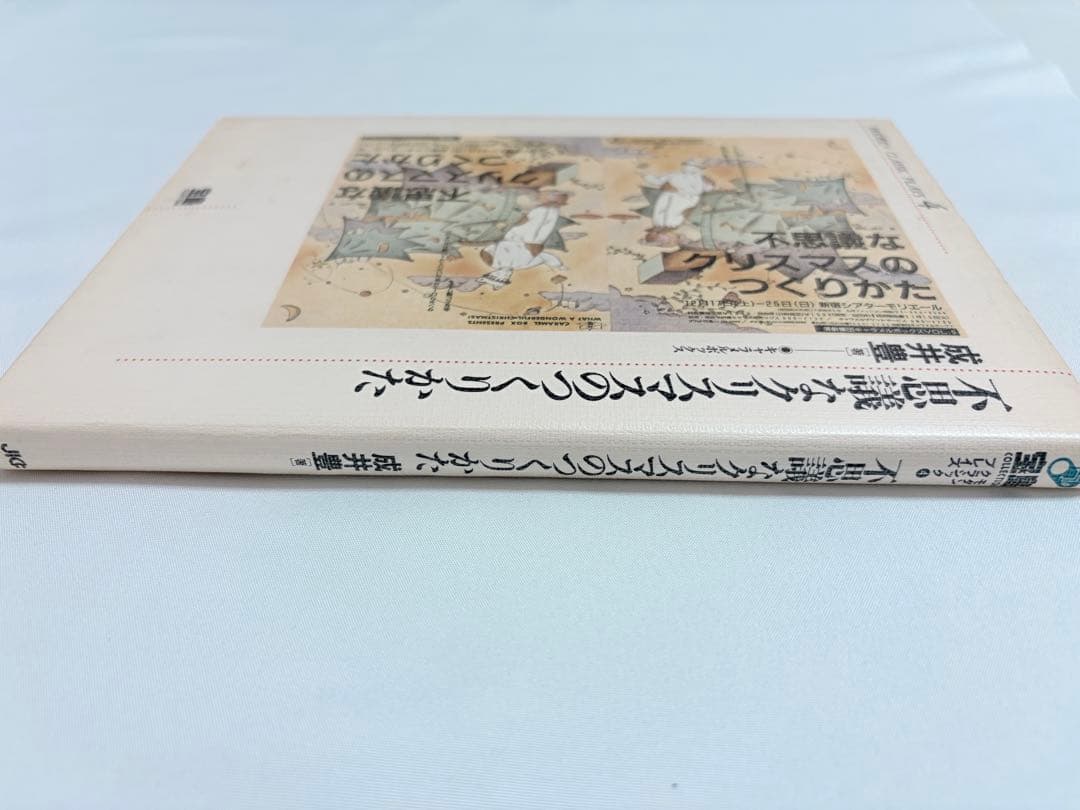 不思議なクリスマスのつくりかた
成井豊[著]
●キャラメルボックス
不思議な
クリスマスの
つくりかた
不思議な
クリスマスの
つくりかた
CARAMEL BOX PRESENTS
WHAT A WONDERFUL CHRISTMAS!
CLASSIC PLAYS 4
宝島
COLLECTION
モダン・
クラシック
プレイズ
4
不思議なクリスマスのつくりかた
成井豊[著]
JICC